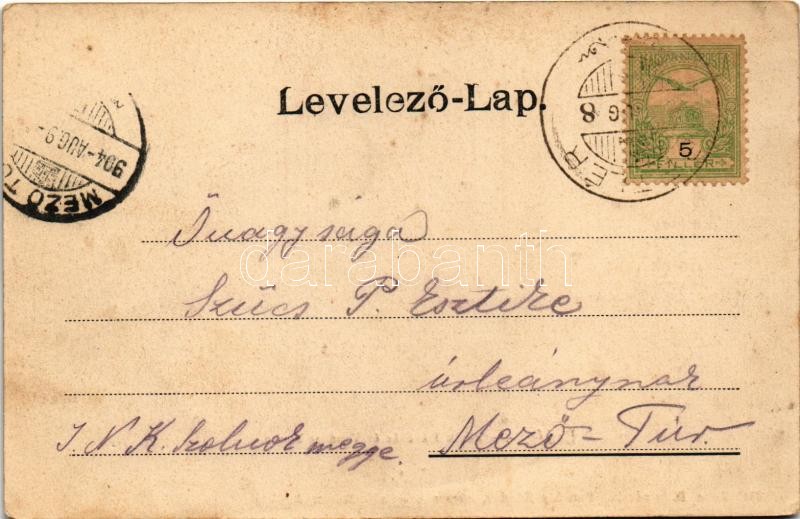 Levelező-Lap.
MAGYAR POSTA
5
FILLÉR
8
904-AUG 9
MEZŐ TÚ
darabanth
Őnagysága
Szűcs P. Esztike
úrleánynak
J. N. K. Szolnok megye.
Mező-Túr.